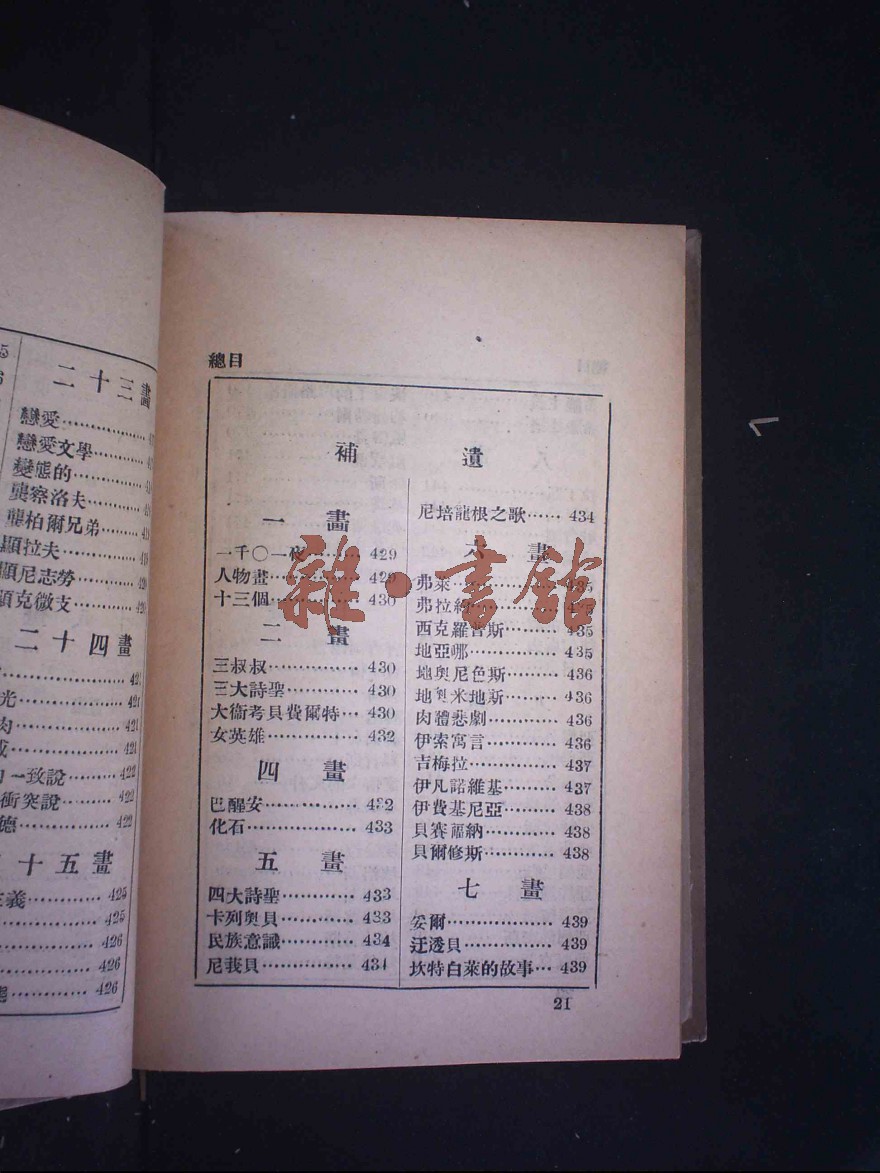 二十三畫
戀愛
戀愛文學
變態的
龔察洛夫
龔柏爾兄弟
顯拉夫
顯尼志勞
顯克微支
二十四畫
421
光 421
肉 421
421
一致說 422
衝突說 422
德 422
十五畫
主義 425
425
426
426
426
總目
補遺
一畫
一千〇一夜 429
人物畫 429
十三個 430
二畫
三叔叔 430
三大詩聖 430
大衞考貝費爾特 430
女英雄 432
四畫
巴醒安 432
化石 433
五畫
四大詩聖 433
卡列奧貝 433
民族意識 434
尼莪貝 434
尼培龍根之歌 434
六畫
弗萊 435
弗拉 435
西克羅普斯 435
地亞哪 435
地奧尼色斯 436
地奧米地斯 436
肉體悲劇 436
伊索寓言 436
吉梅拉 437
伊凡諾維基 437
伊費基尼亞 438
貝賽福納 438
貝爾修斯 438
七畫
妥爾 439
迂透貝 439
坎特白萊的故事 439
21
雜·書館